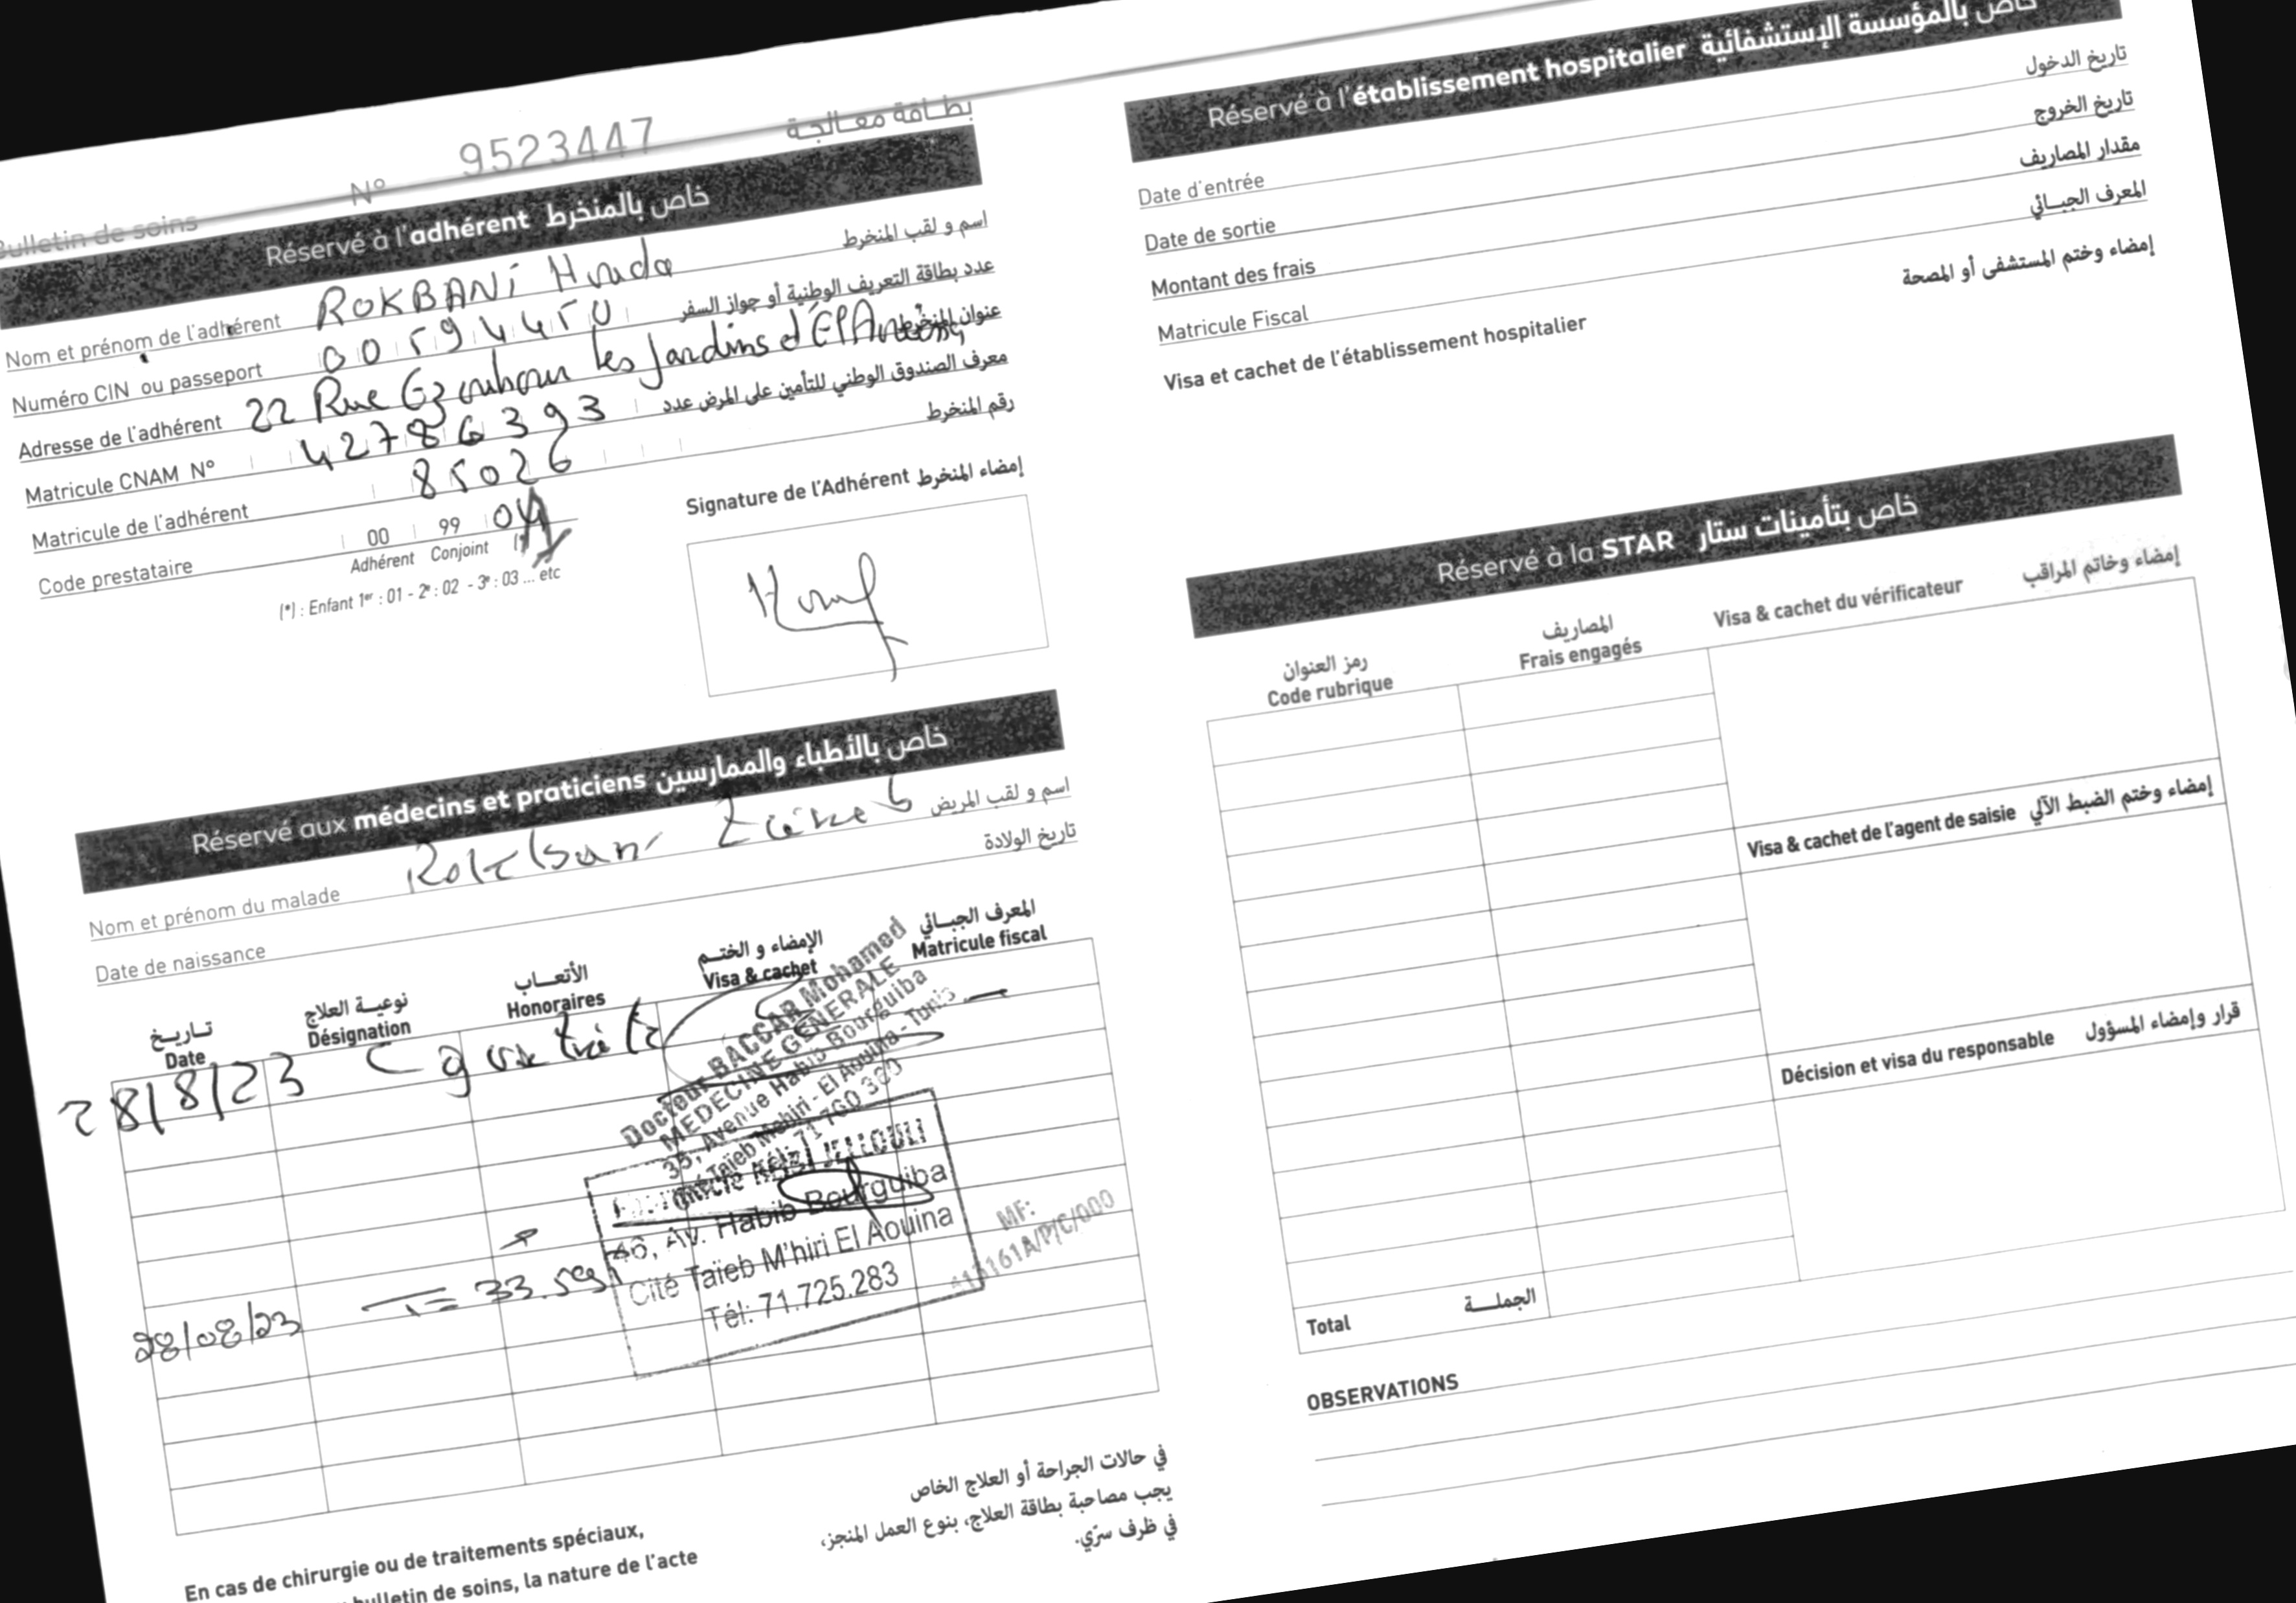 Bulletin de soins N° 9523447 بطاقة معالجة
Réservé à l'adhérent خاص بالمنخرط
Nom et prénom de l'adhérent ROKBANi Houda اسم و لقب المنخرط
Numéro CIN ou passeport 00594450 عدد بطاقة التعريف الوطنية أو جواز السفر
Adresse de l'adhérent 22 Rue les Jardins d'El عنوان المنخرط
Matricule CNAM N° 4278 6393 معرف الصندوق الوطني للتأمين على المرض عدد
Matricule de l'adhérent 85026 رقم المنخرط
Code prestataire 00 99
Adhérent Conjoint
(*) : Enfant 1er : 01 - 2e : 02 - 3e : 03 ... etc
Signature de l'Adhérent إمضاء المنخرط
Réservé aux médecins et praticiens خاص بالأطباء والممارسين
Nom et prénom du malade اسم و لقب المريض
Date de naissance تاريخ الولادة
تاريخ نوعية العلاج الأتعاب الإمضاء و الختم المعرف الجبائي
Date Désignation Honoraires Visa & cachet Matricule fiscal
28/8/23
Docteur BACCAR Mohamed
MEDECINE GENERALE
35, Avenue Habib Bourguiba
Taïeb Mehiri - El Aouina - Tunis
71 760 360
JELLOULI
46, Av. Habib Bourguiba
Cité Taïeb M'hiri El Aouina
Tél: 71.725.283
MF:
28/08/23
En cas de chirurgie ou de traitements spéciaux,
bulletin de soins, la nature de l'acte
في حالات الجراحة أو العلاج الخاص
يجب مصاحبة بطاقة العلاج، بنوع العمل المنجز،
في ظرف سرّي.
Réservé à l'établissement hospitalier خاص بالمؤسسة الإستشفائية
Date d'entrée تاريخ الدخول
Date de sortie تاريخ الخروج
Montant des frais مقدار المصاريف
Matricule Fiscal المعرف الجبائي
Visa et cachet de l'établissement hospitalier إمضاء وختم المستشفى أو المصحة
Réservé à la STAR خاص بتأمينات ستار
رمز العنوان المصاريف إمضاء وخاتم المراقب
Code rubrique Frais engagés Visa & cachet du vérificateur
Visa & cachet de l'agent de saisie إمضاء وختم الضبط الآلي
Décision et visa du responsable قرار وإمضاء المسؤول
Total الجملة
OBSERVATIONS